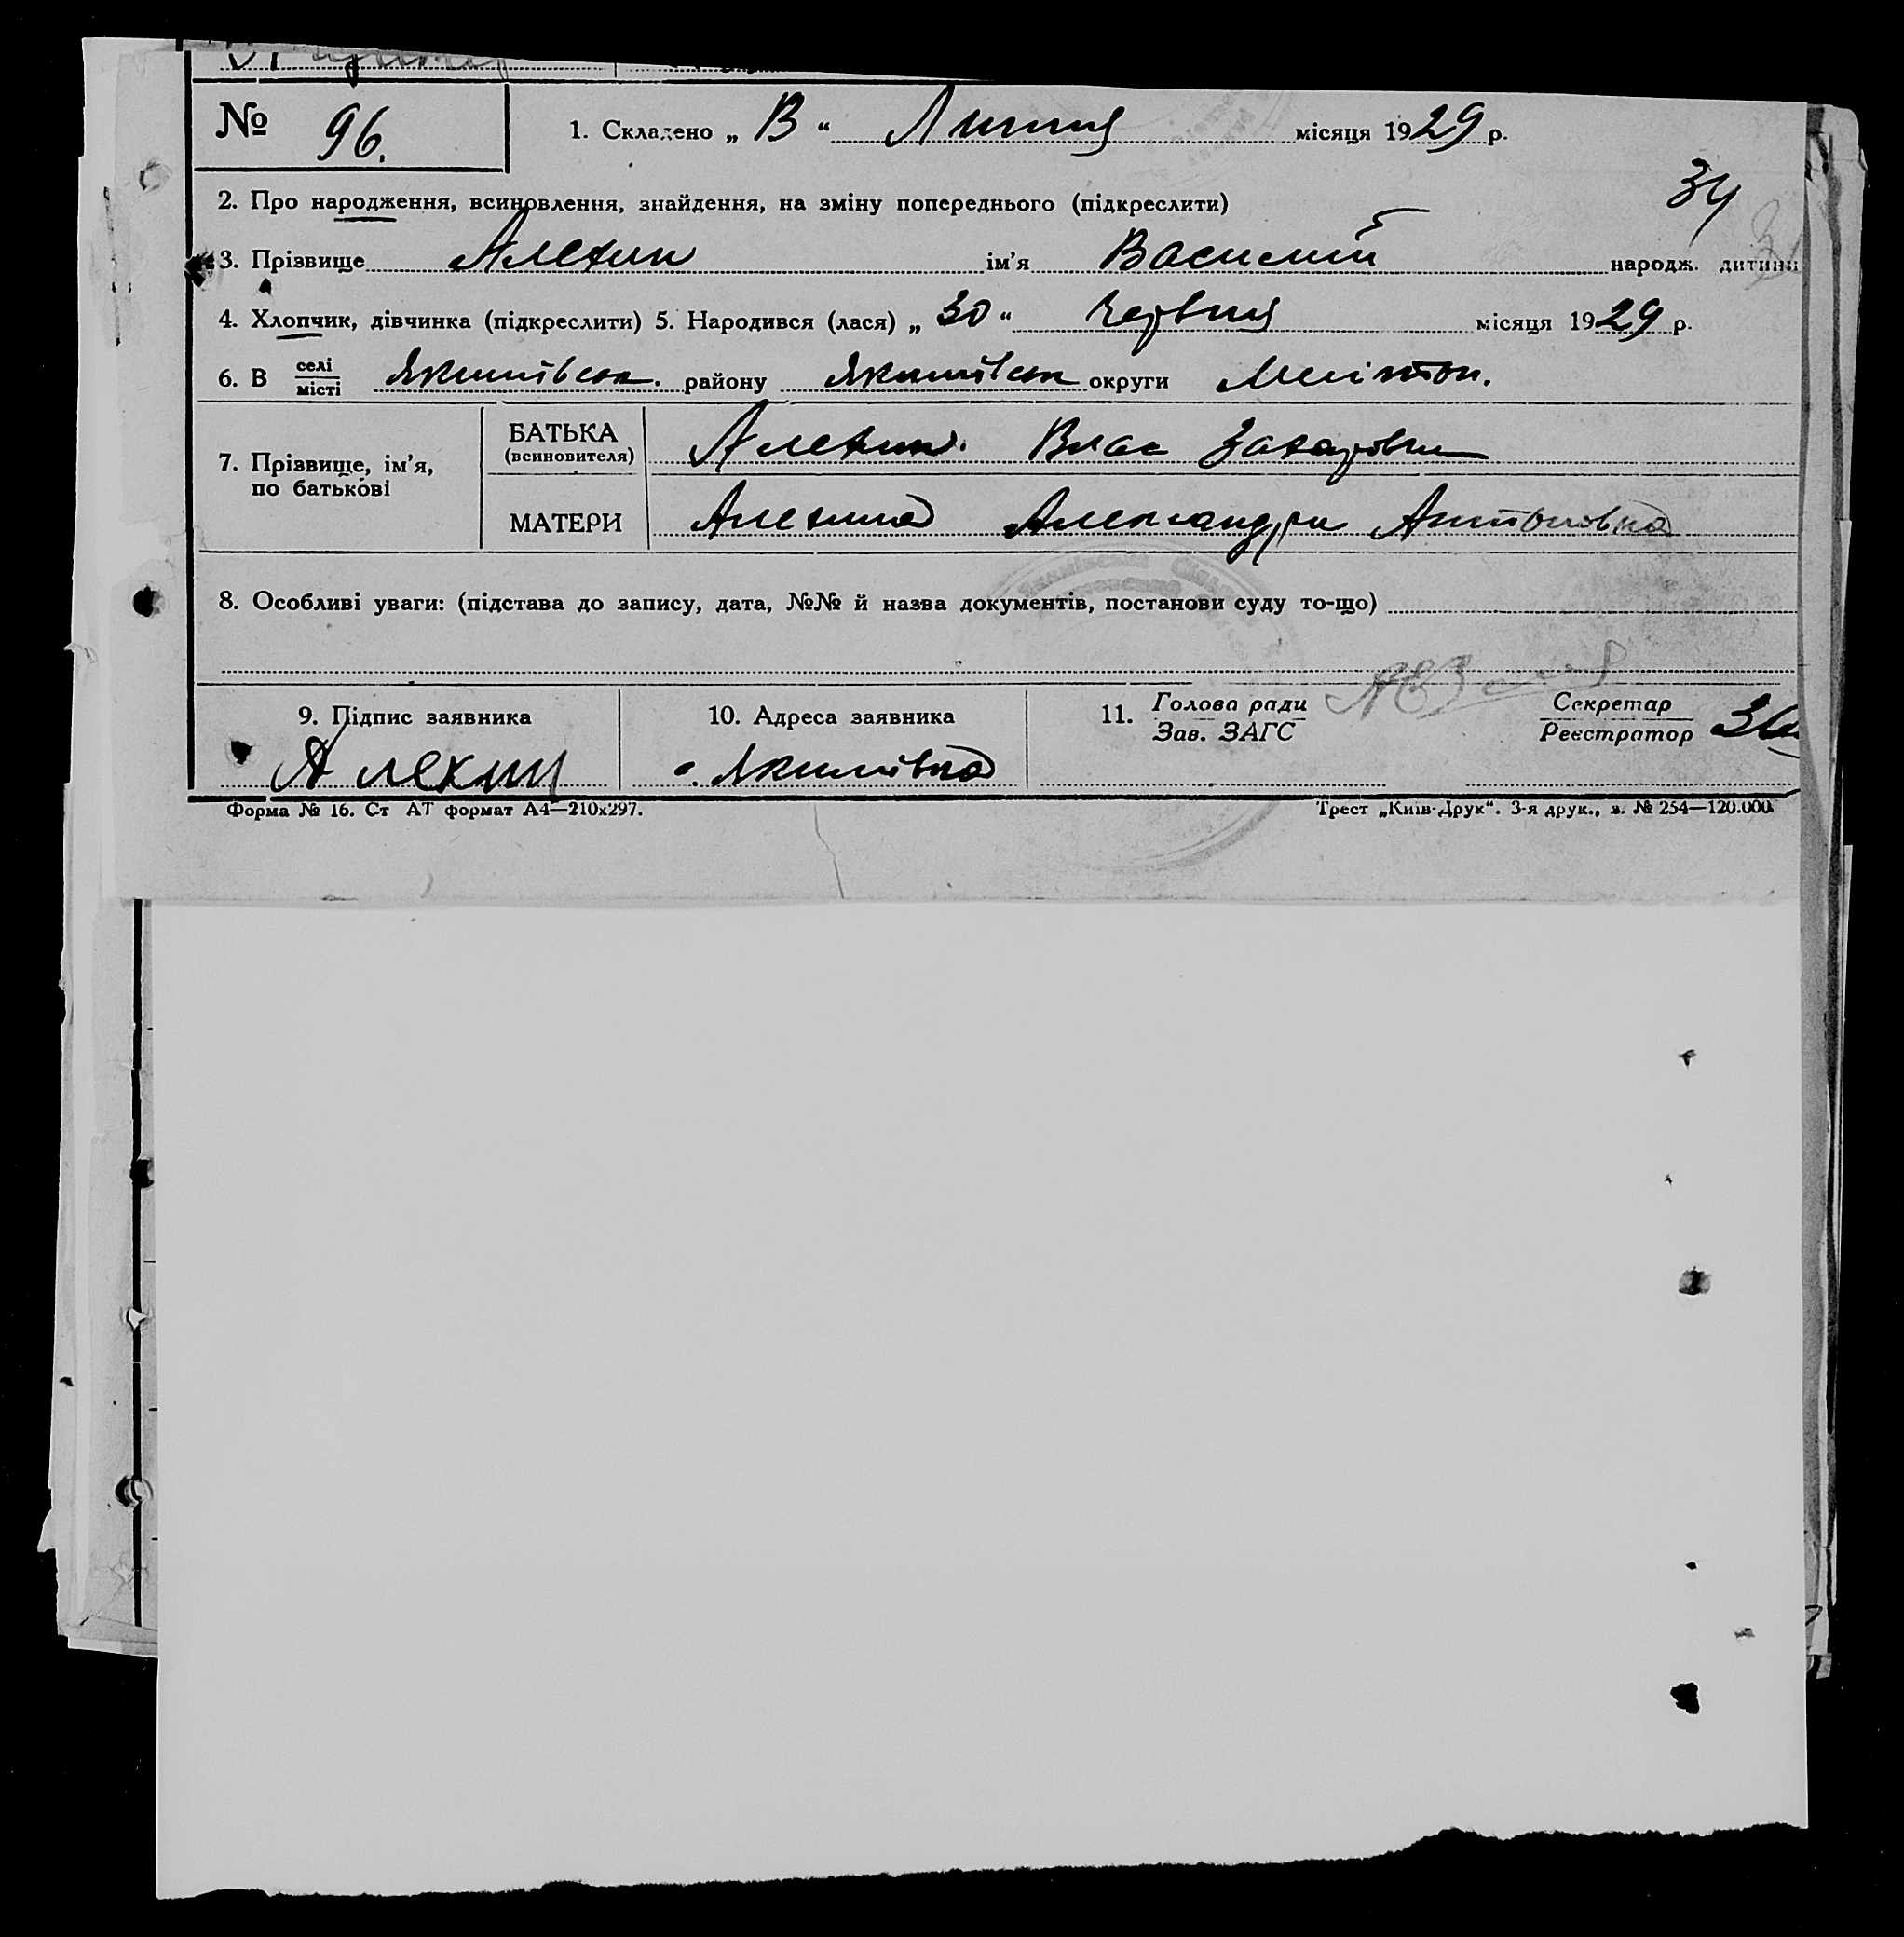 № 96. 1. Складено „ В “ Липня місяця 1929 р.
34
2. Про народження, всиновлення, знайдення, на зміну попереднього (підкреслити)
3. Прізвище Алехин ім’я Василий народж. дитини
4. Хлопчик, дівчинка (підкреслити) 5. Народився (лася) „ 30 “ Червня місяця 1929 р.
6. В селі місті Якимівськ. району Якимівськ округи Меліտոп.
7. Прізвище, ім’я, по батькові
БАТЬКА (всиновителя) Алехин Влас Захарович
МАТЕРИ Алехина Александра Антоновна
8. Особливі уваги: (підстава до запису, дата, №№ й назва документів, постанови суду то-що)
9. Підпис заявника 10. Адреса заявника 11. Голова ради Зав. ЗАГС Секретар Реєстратор
Алехин с. Якимівка
Форма № 16. Ст АТ формат А4—210х297. Трест „Київ-Друк“. 3-я друк., з. № 254—120.000.